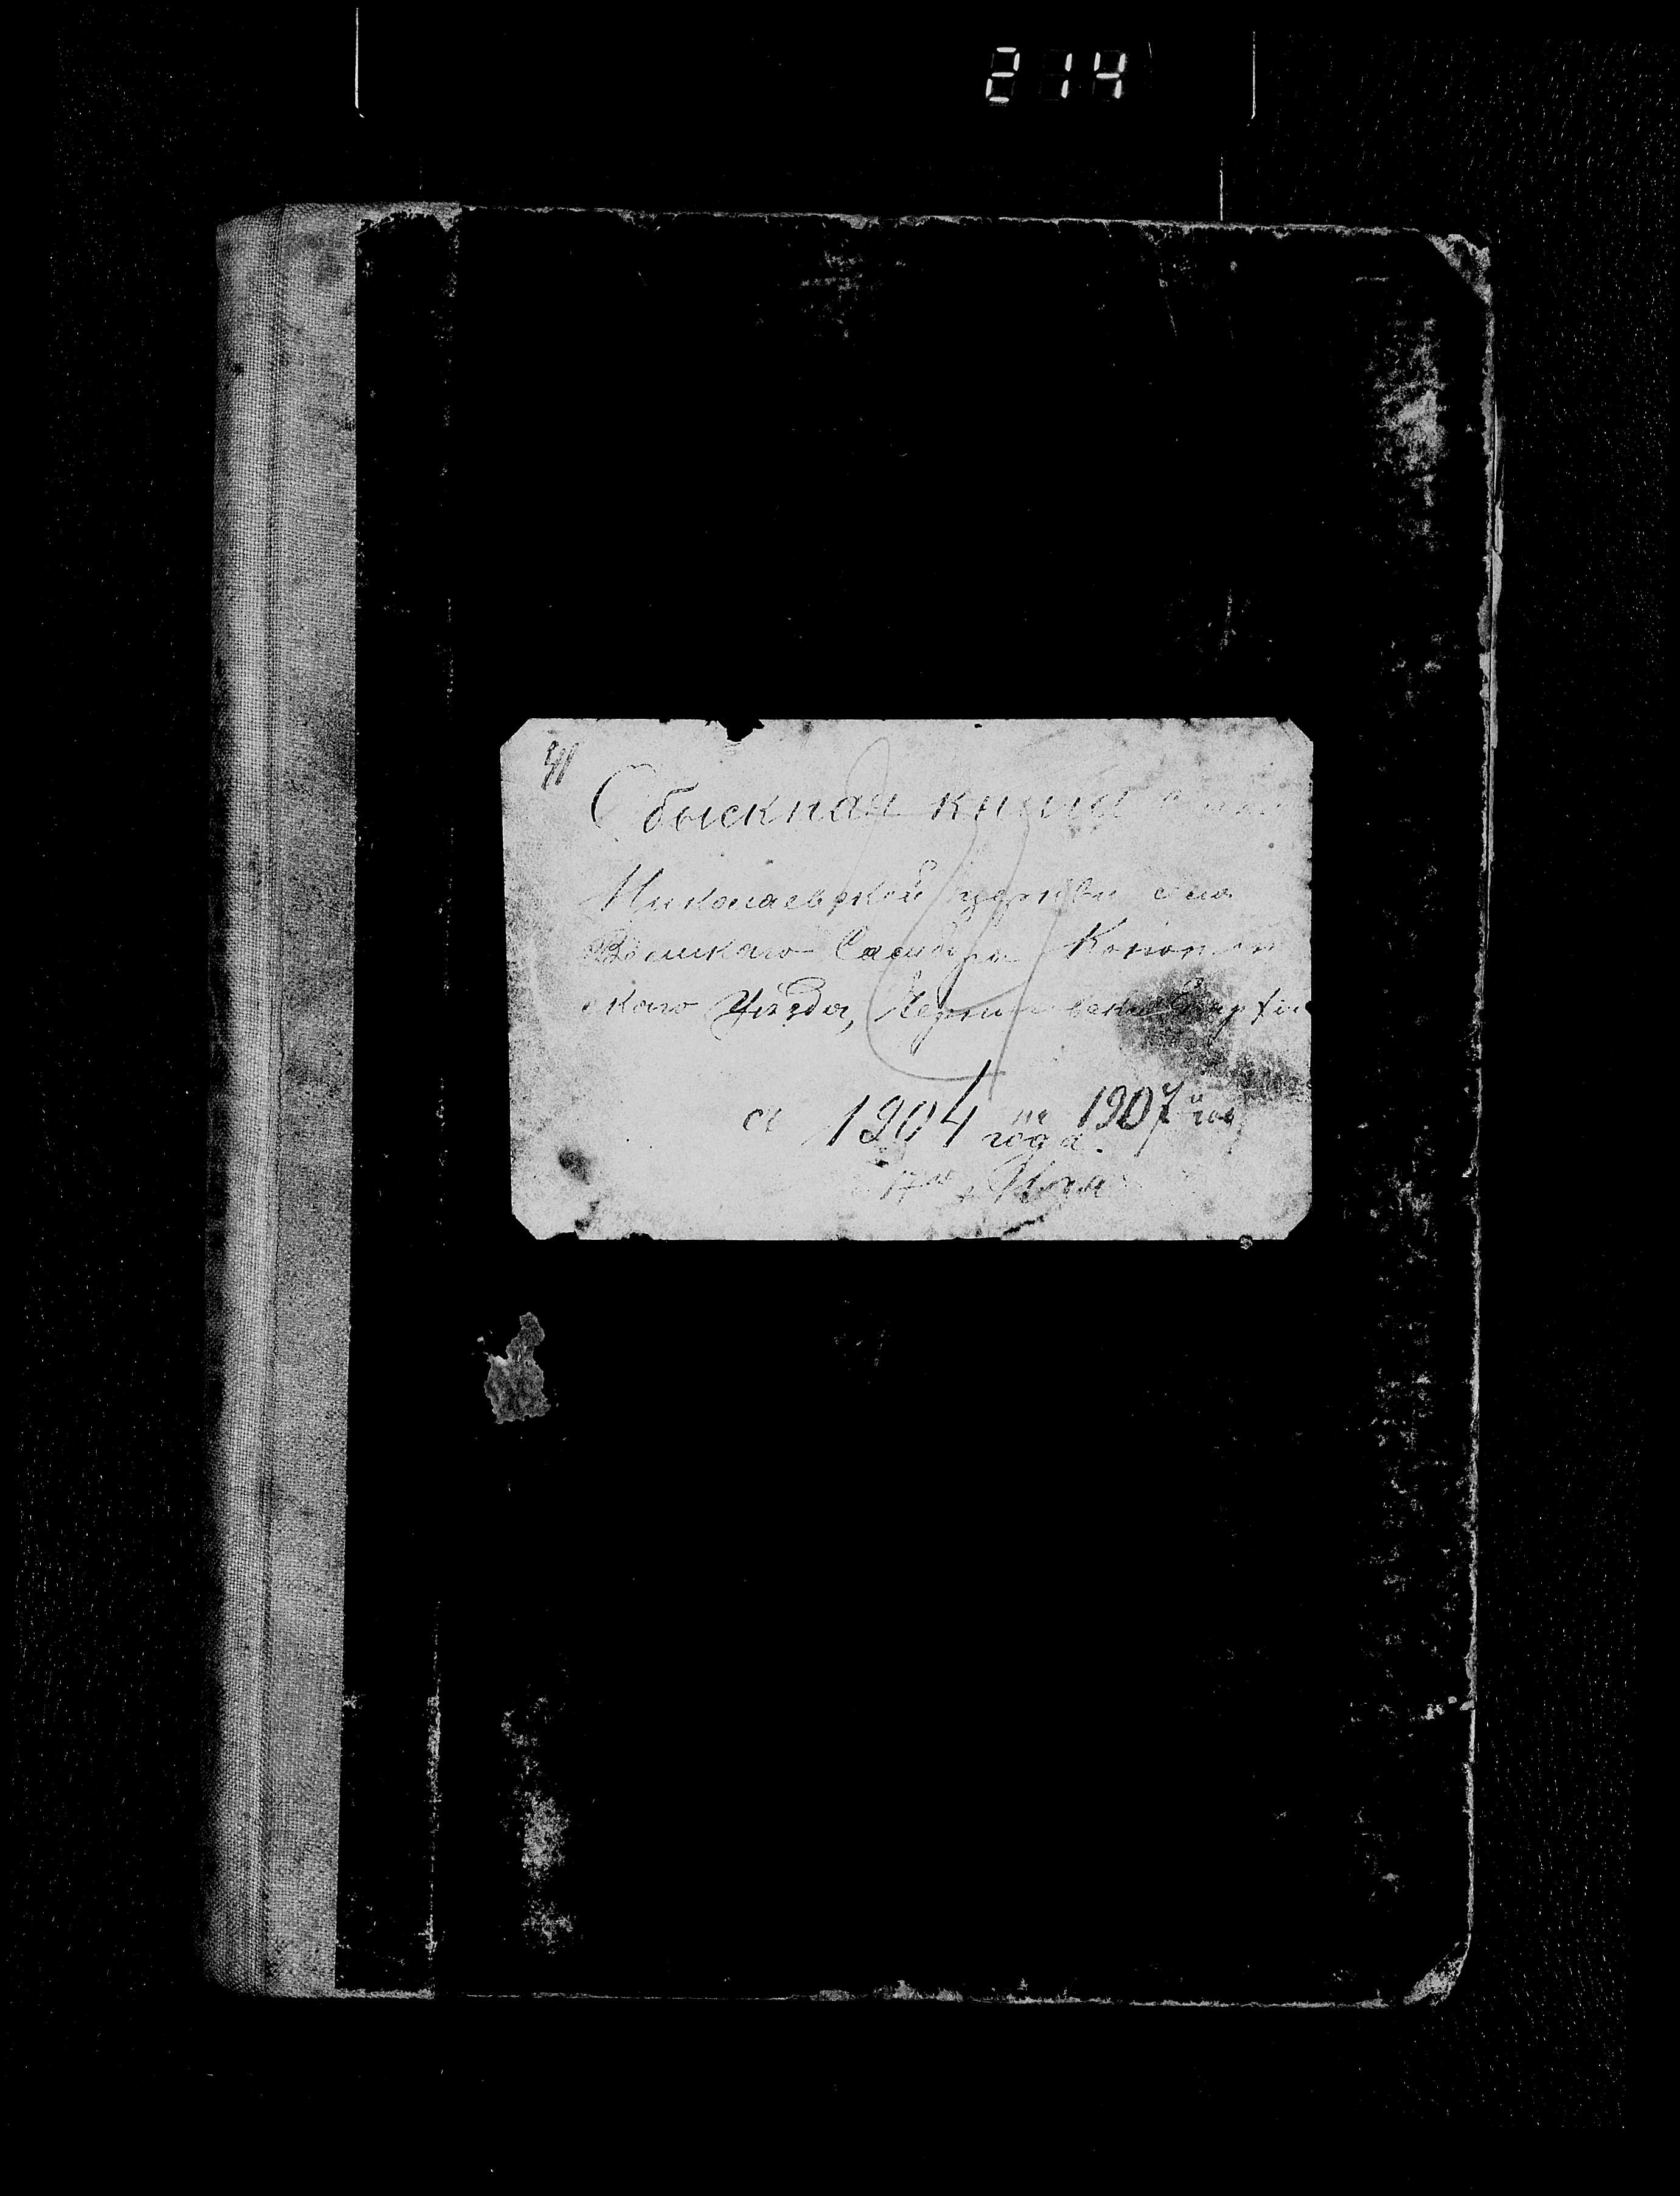 214
41
Обыскная книга
Николаевской церкви села
Великаго Самбора Конотоп
скаго Уѣзда, Черниговской Губерніи
съ 1904 по 1907 й год
года.